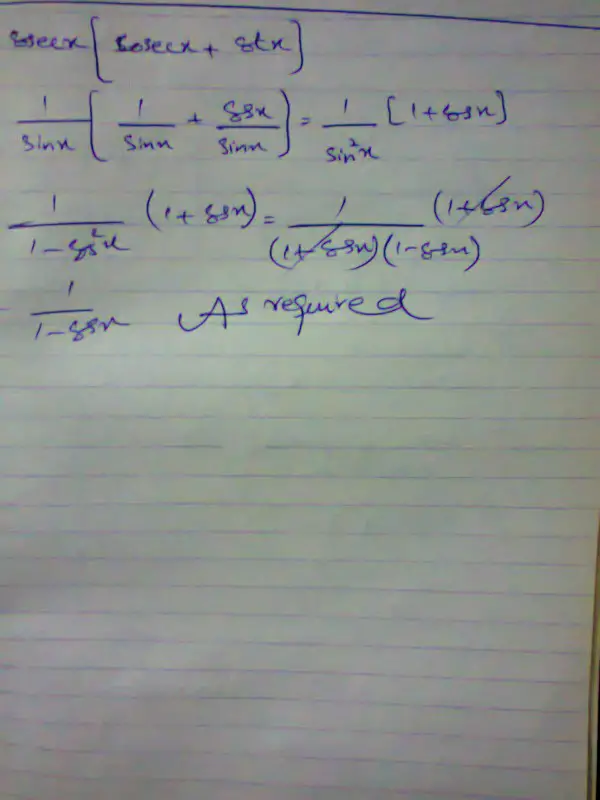 cosecx [cosecx + cotx]
1/sinx [1/sinx + cosx/sinx] = 1/sin²x [1+cosx]
1/1-cos²x (1+cosx) = 1/(1+cosx)(1-cosx) (1+cosx)
1/1-cosx As required